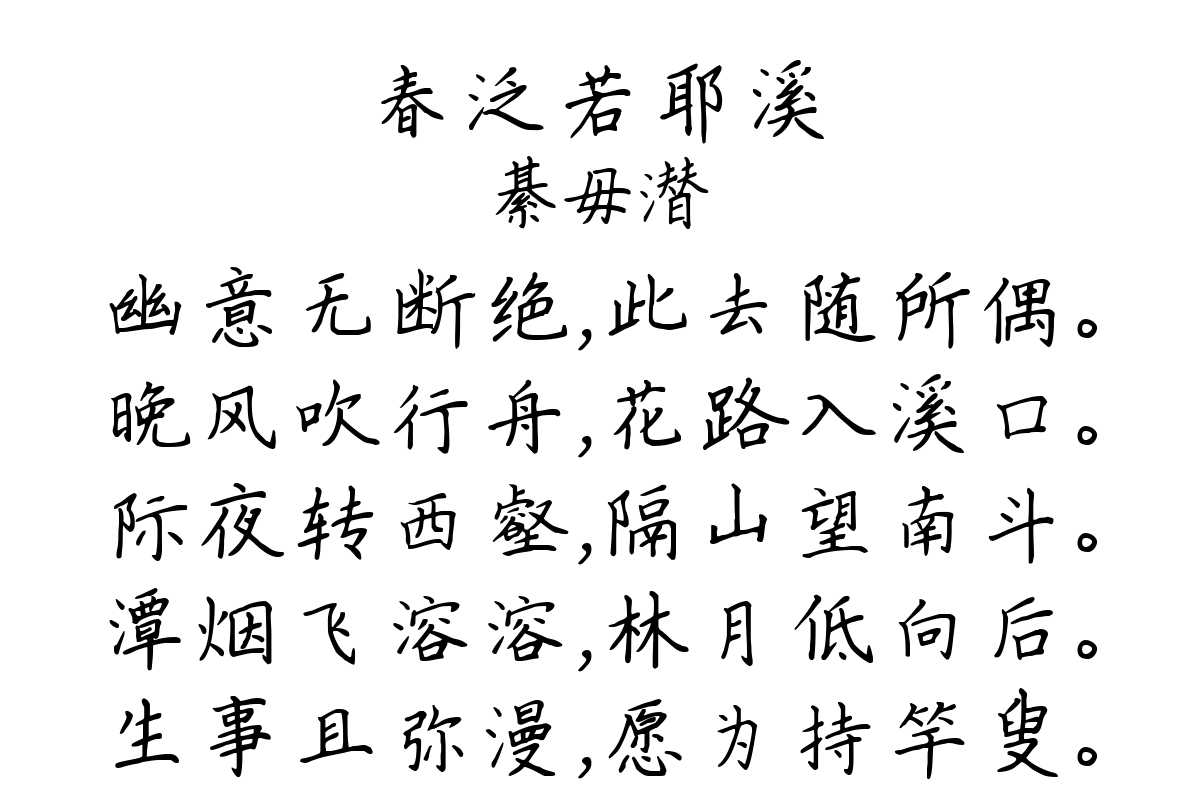 春泛若耶溪
綦毋潜
幽意无断绝,此去随所偶。
晚风吹行舟,花路入溪口。
际夜转西壑,隔山望南斗。
潭烟飞溶溶,林月低向后。
生事且弥漫,愿为持竿叟。